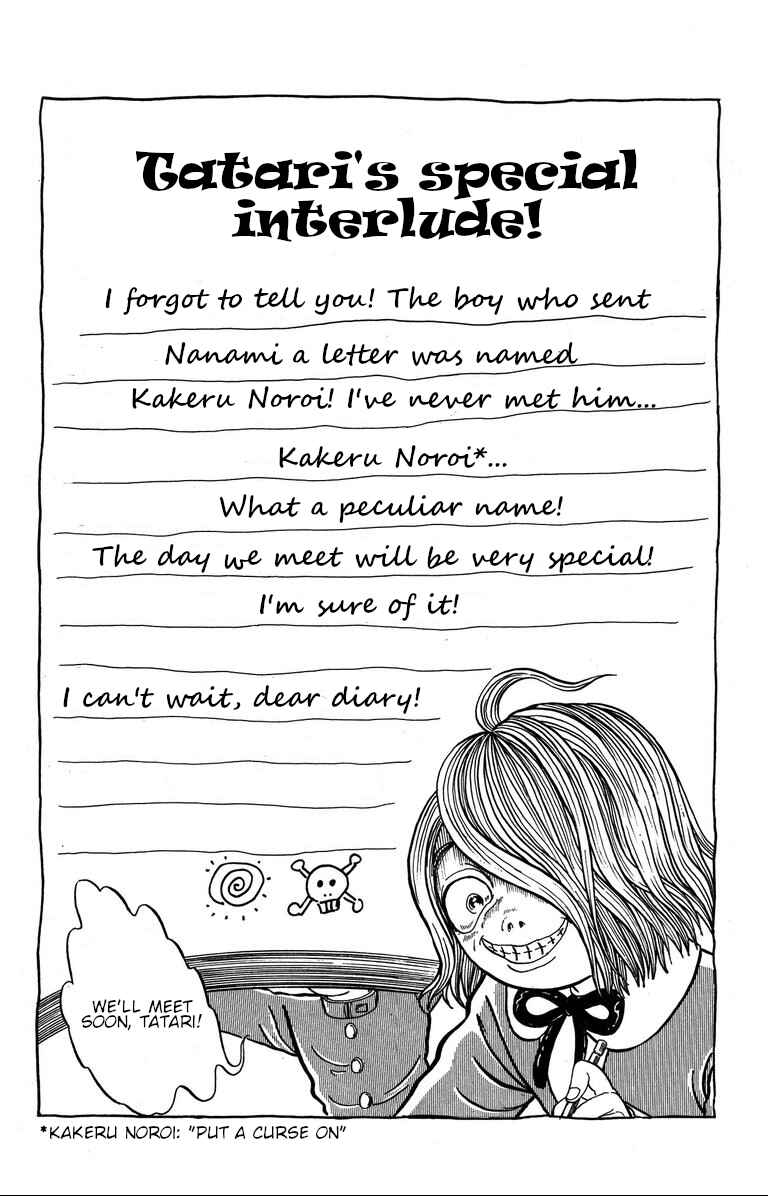 Tatari's special
interlude!
I forgot to tell you! The boy who sent
Nanami a letter was named
Kakeru Noroi! I've never met him...
Kakeru Noroi*...
What a peculiar name!
The day we meet will be very special!
I'm sure of it!
I can't wait, dear diary!
WE'LL MEET
SOON, TATARI!
*KAKERU NOROI: "PUT A CURSE ON"